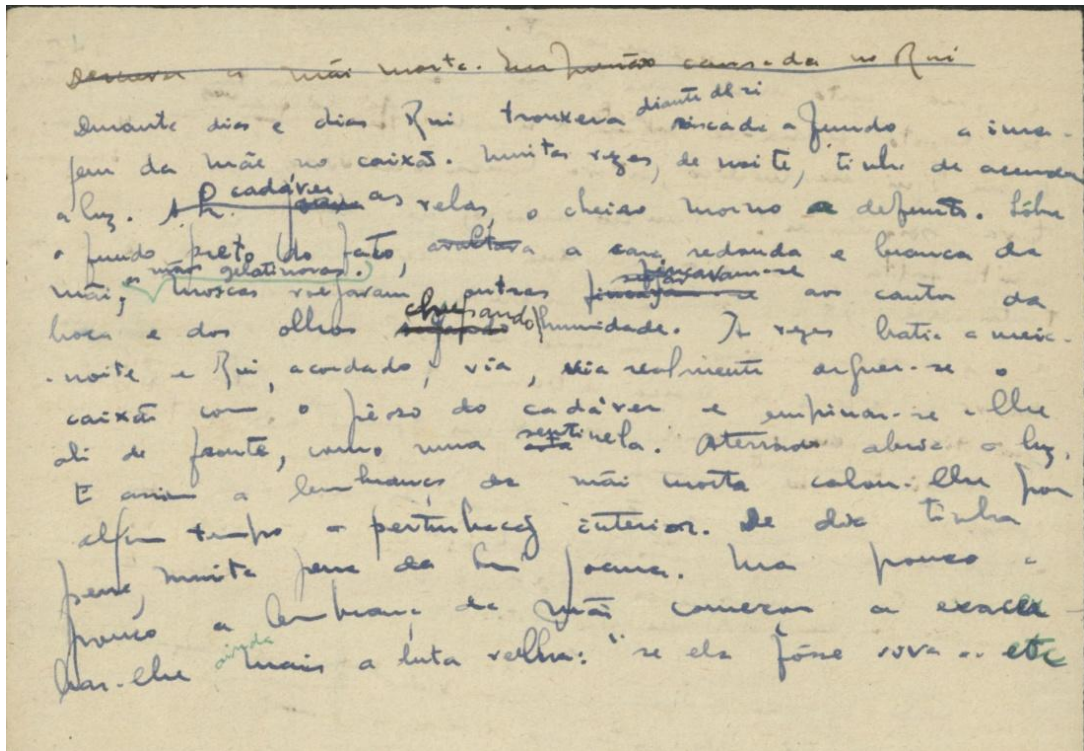 a mãi morta. Impressão causada no Rui
Durante dias e dias Rui trouxera diante de si riscada a fundo a ima-
gem da mãe no caixão. Muitas vezes, de noite, tinha de acender
a luz. O cadáver as velas, o cheiro morno a defunto. Sôbre
o fundo preto do fato, avultava a cara redonda e branca da
mãi, as mãos gelatinosas. moscas voejavam, outras fincavam-se aos cantos da
boca e dos olhos chupando humidade. Às vezes batia a meia-
-noite e Rui, acordado, via, via realmente erguer-se o
caixão com o pêso do cadáver e empinar-se-lhe
ali de fronte, como uma sentinela. Aterrado abria a luz.
E assim a lembrança da mãi morta calou-lhe por
algum tempo a perturbação interior. De dia tinha
pena, muita pena da Joana. Mas pouco a
pouco a lembrança da mãi começou a exacer-
bar-lhe ainda mais a luta velha: "se ela fôsse viva ... etc